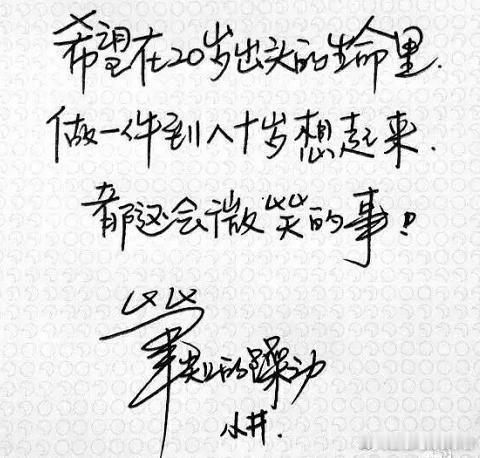 希望在20岁出头的生命里.
做一件到八十岁想起来.
都还会微笑的事!
笔尖的躁动
小井.